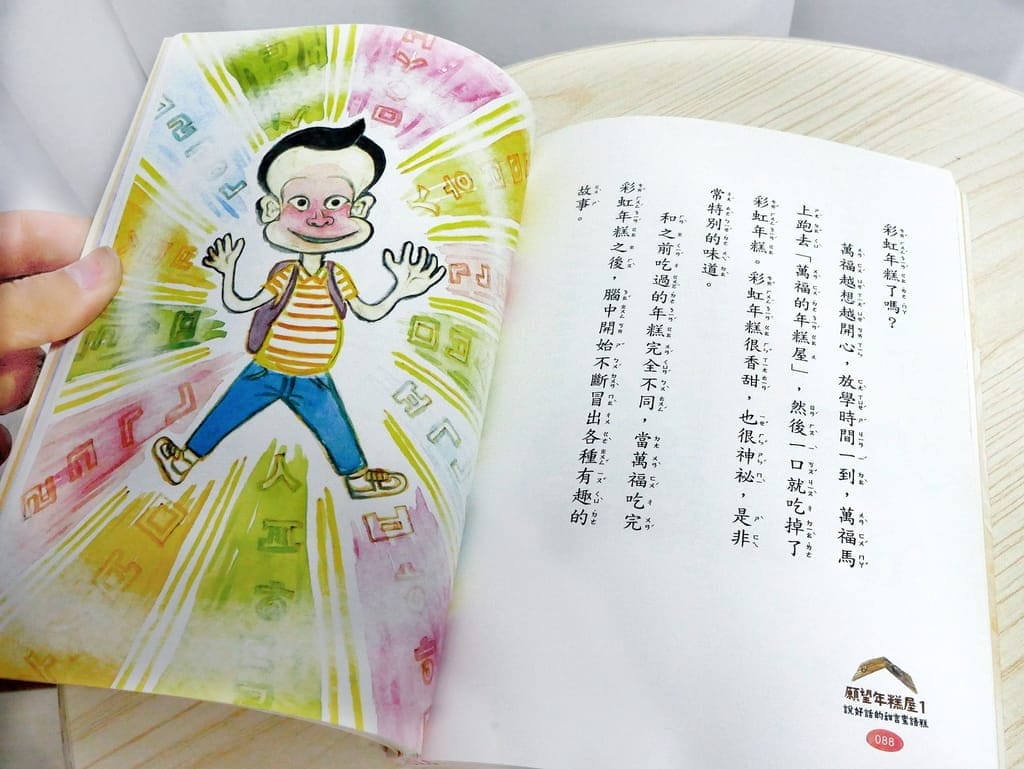 彩虹年糕了嗎？
萬福越想越開心，放學時間一到，萬福馬
上跑去「萬福的年糕屋」，然後一口就吃掉了
彩虹年糕。彩虹年糕很香甜，也很神祕，是非
常特別的味道。
和之前吃過的年糕完全不同，當萬福吃完
彩虹年糕之後，腦中開始不斷冒出各種有趣的
故事。
願望年糕屋1
說好話的甜言蜜語糕
088